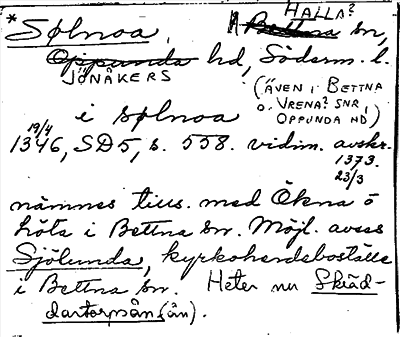 HALLA?
*Sølnoa, Bettna sn,
Oppunda hd, Söderm. l.
JÖNÅKERS
(ÄVEN I BETTNA
O. VRENA? SNR,
OPPUNDA HD)
i sølnoa
19/4
1346, SD5, s. 558. vidim. avskr.
1373.
23/3
nämnes tills. med Ökna ö
i Bettna sn. Möjl. avses
Sjölunda, kyrkoherdeboställe
i Bettna sn. Heter nu Skräd-
dartorpsån (ån).